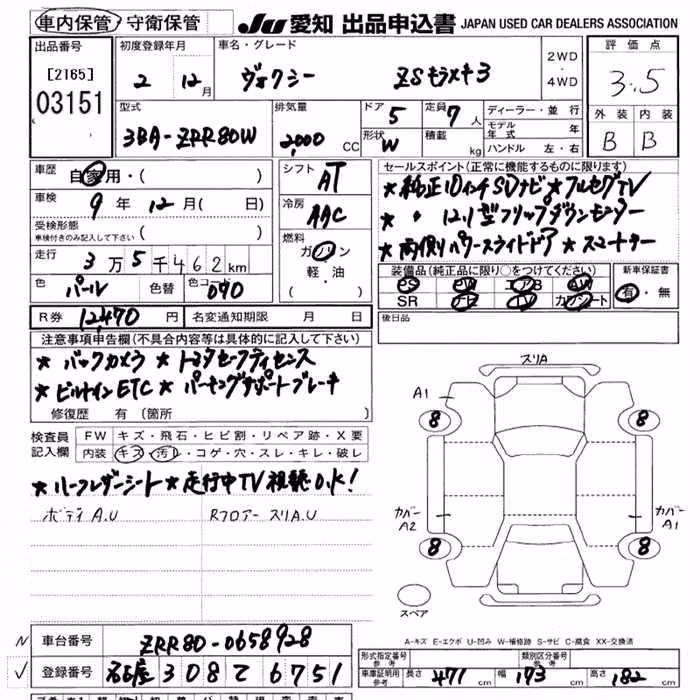 車内保管 / 守衛保管 JU 愛知 出品申込書 JAPAN USED CAR DEALERS ASSOCIATION
出品番号 初度登録年月 車名・グレード 評価点
[2165] 2 12月 ヴォクシー ZSキラメキ3 2WD ・ 4WD 3.5
03151 外装 内装
型式 排気量 ドア 5 定員 7人 ディーラー・並行 B B
3BA-ZRR80W 2,000 CC 形状 W 積載 kg モデル年式 年
ハンドル 左・右
車歴 自家用・( ) シフト AT セールスポイント(正常に機能するものに限ります)
車検 9年 12月( 日) 冷房 AAC ★純正10インチSDナビ ★フルセグTV
受検形態 ( ) ★ 〃 12.1型フリップダウンモニター
車検付きのみ記入して下さい 燃料 ガソリン ★両側パワースライドドア ★スマートキー
走行 3万5千462km 軽・油 装備品(純正品に限り○をつけてください) 新車保証書
色 パール 色替 色コード 070 ( ) PS PW エアB AW 有・無
SR ナビ TV カワシート
R券 12,470円 名変通知期限 月 日 後日品
注意事項申告欄(不具合内容等は具体的に記入して下さい)
★バックカメラ ★トヨタセーフティセンス
★ビルトインETC ★パーキングサポートブレーキ
修復歴 有 (箇所 )
検査員記入欄 FW キズ・飛石・ヒビ割・リペア跡・X要
内装 キズ・汚レ・コゲ・穴・スレ・キレ・破レ
★ハーフレザーシート ★走行中TV視聴O.K!
ボディA.U Rフロアースリ A.U
スリA
A1
8 8
カバーA2 カバーA1
8 8
スペア
A-キズ E-エクボ U-凹み W-補修跡 S-サビ C-腐食 XX-交換済
N 車台番号 ZRR80-0658928
✓ 登録番号 名古屋 308 て 6751
形式指定番号 参考 類別区分番号 参考
車庫証明用 参考 長さ 471cm 幅 173cm 高さ 182cm